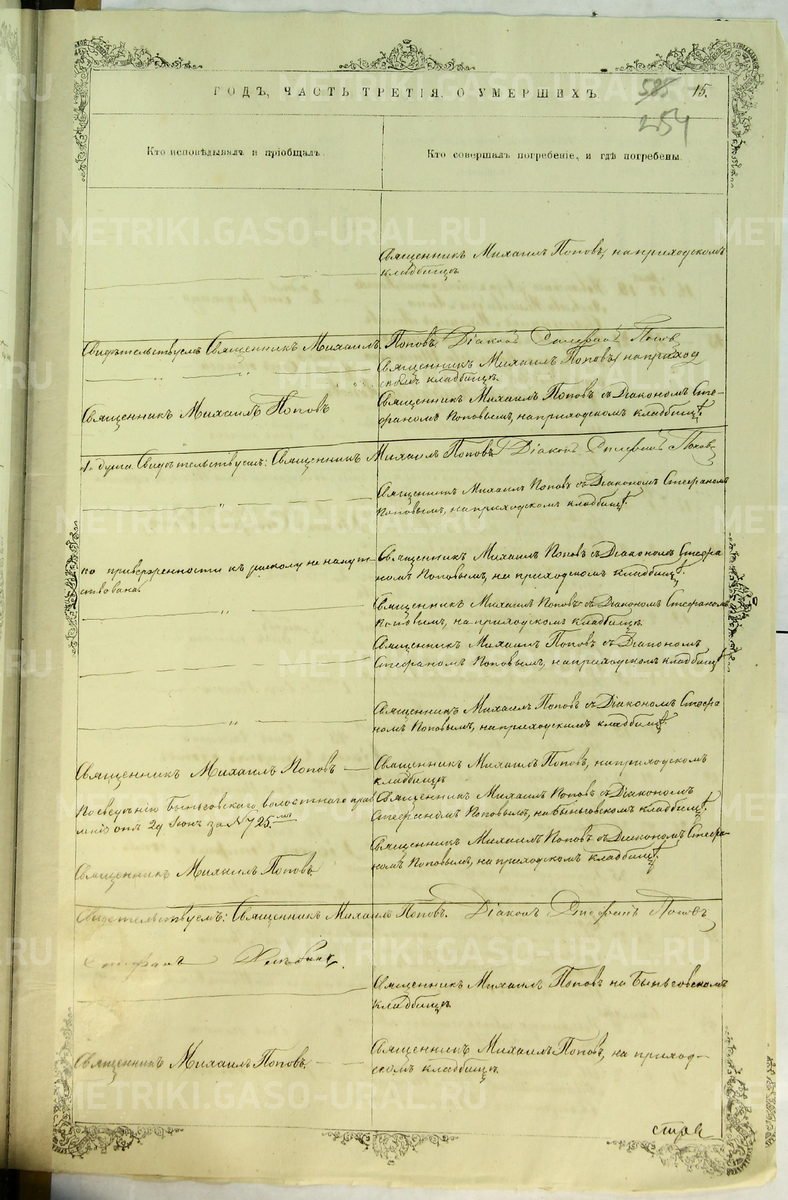 ГОДЪ, ЧАСТЬ ТРЕТІЯ, О УМЕРШИХЪ.
585
15.
254
Кто исповѣдывалъ и пріобщалъ.
Кто совершалъ погребеніе, и гдѣ погребены.
Священникъ Михаилъ Поповъ, на приходскомъ
кладбищѣ.
Свидѣтельствуемъ Священникъ Михаилъ Поповъ Діаконъ Стефанъ Поповъ
Священникъ Михаилъ Поповъ, на приход
скомъ кладбищѣ.
Священникъ Михаилъ Поповъ
Священникъ Михаилъ Поповъ съ Діакономъ Сте-
фаномъ Поповымъ, на приходскомъ кладбищѣ.
душа Свидѣтельствуемъ: Священникъ Михаилъ Поповъ Діаконъ Стефанъ Поповъ
Священникъ Михаилъ Поповъ съ Діакономъ Стефаномъ
Поповымъ, на приходскомъ кладбищѣ.
по приверженности къ расколу не напут-
ствована.
Священникъ Михаилъ Поповъ съ Діакономъ Стефа
номъ Поповымъ, на приходскомъ кладбищѣ.
Священникъ Михаилъ Поповъ съ Діакономъ Стефаномъ
Поповымъ, на приходскомъ кладбищѣ.
Священникъ Михаилъ Поповъ съ Діакономъ
Стефаномъ Поповымъ, на приходскомъ кладбищѣ
Священникъ Михаилъ Поповъ съ Діакономъ Стефа
номъ Поповымъ, на приходскимъ кладбищѣ.
Священникъ Михаилъ Поповъ
Священникъ Михаилъ Поповъ, на приходскомъ
кладбищѣ
По сведѣнію Быньговскаго волостнаго прав
ленія отъ 29 Іюнѣ за № 725.
Священникъ Михаилъ Поповъ съ Діакономъ
Стефаномъ Поповымъ, на Быньговскомъ кладбищѣ.
Священникъ Михаилъ Поповъ
Священникъ Михаилъ Поповъ съ Діакономъ Стефа-
номъ Поповымъ, на приходскомъ кладбищѣ.
Свидетельствуемъ: Священникъ Михаилъ Поповъ. Діаконъ Стефанъ Поповъ
Священникъ Михаилъ Поповъ на Быньговскомъ
кладбищѣ.
Священникъ Михаилъ Поповъ,
Священникъ Михаилъ Поповъ, на приход-
скомъ кладбищѣ.
METRIKI.GASO-URAL.RU